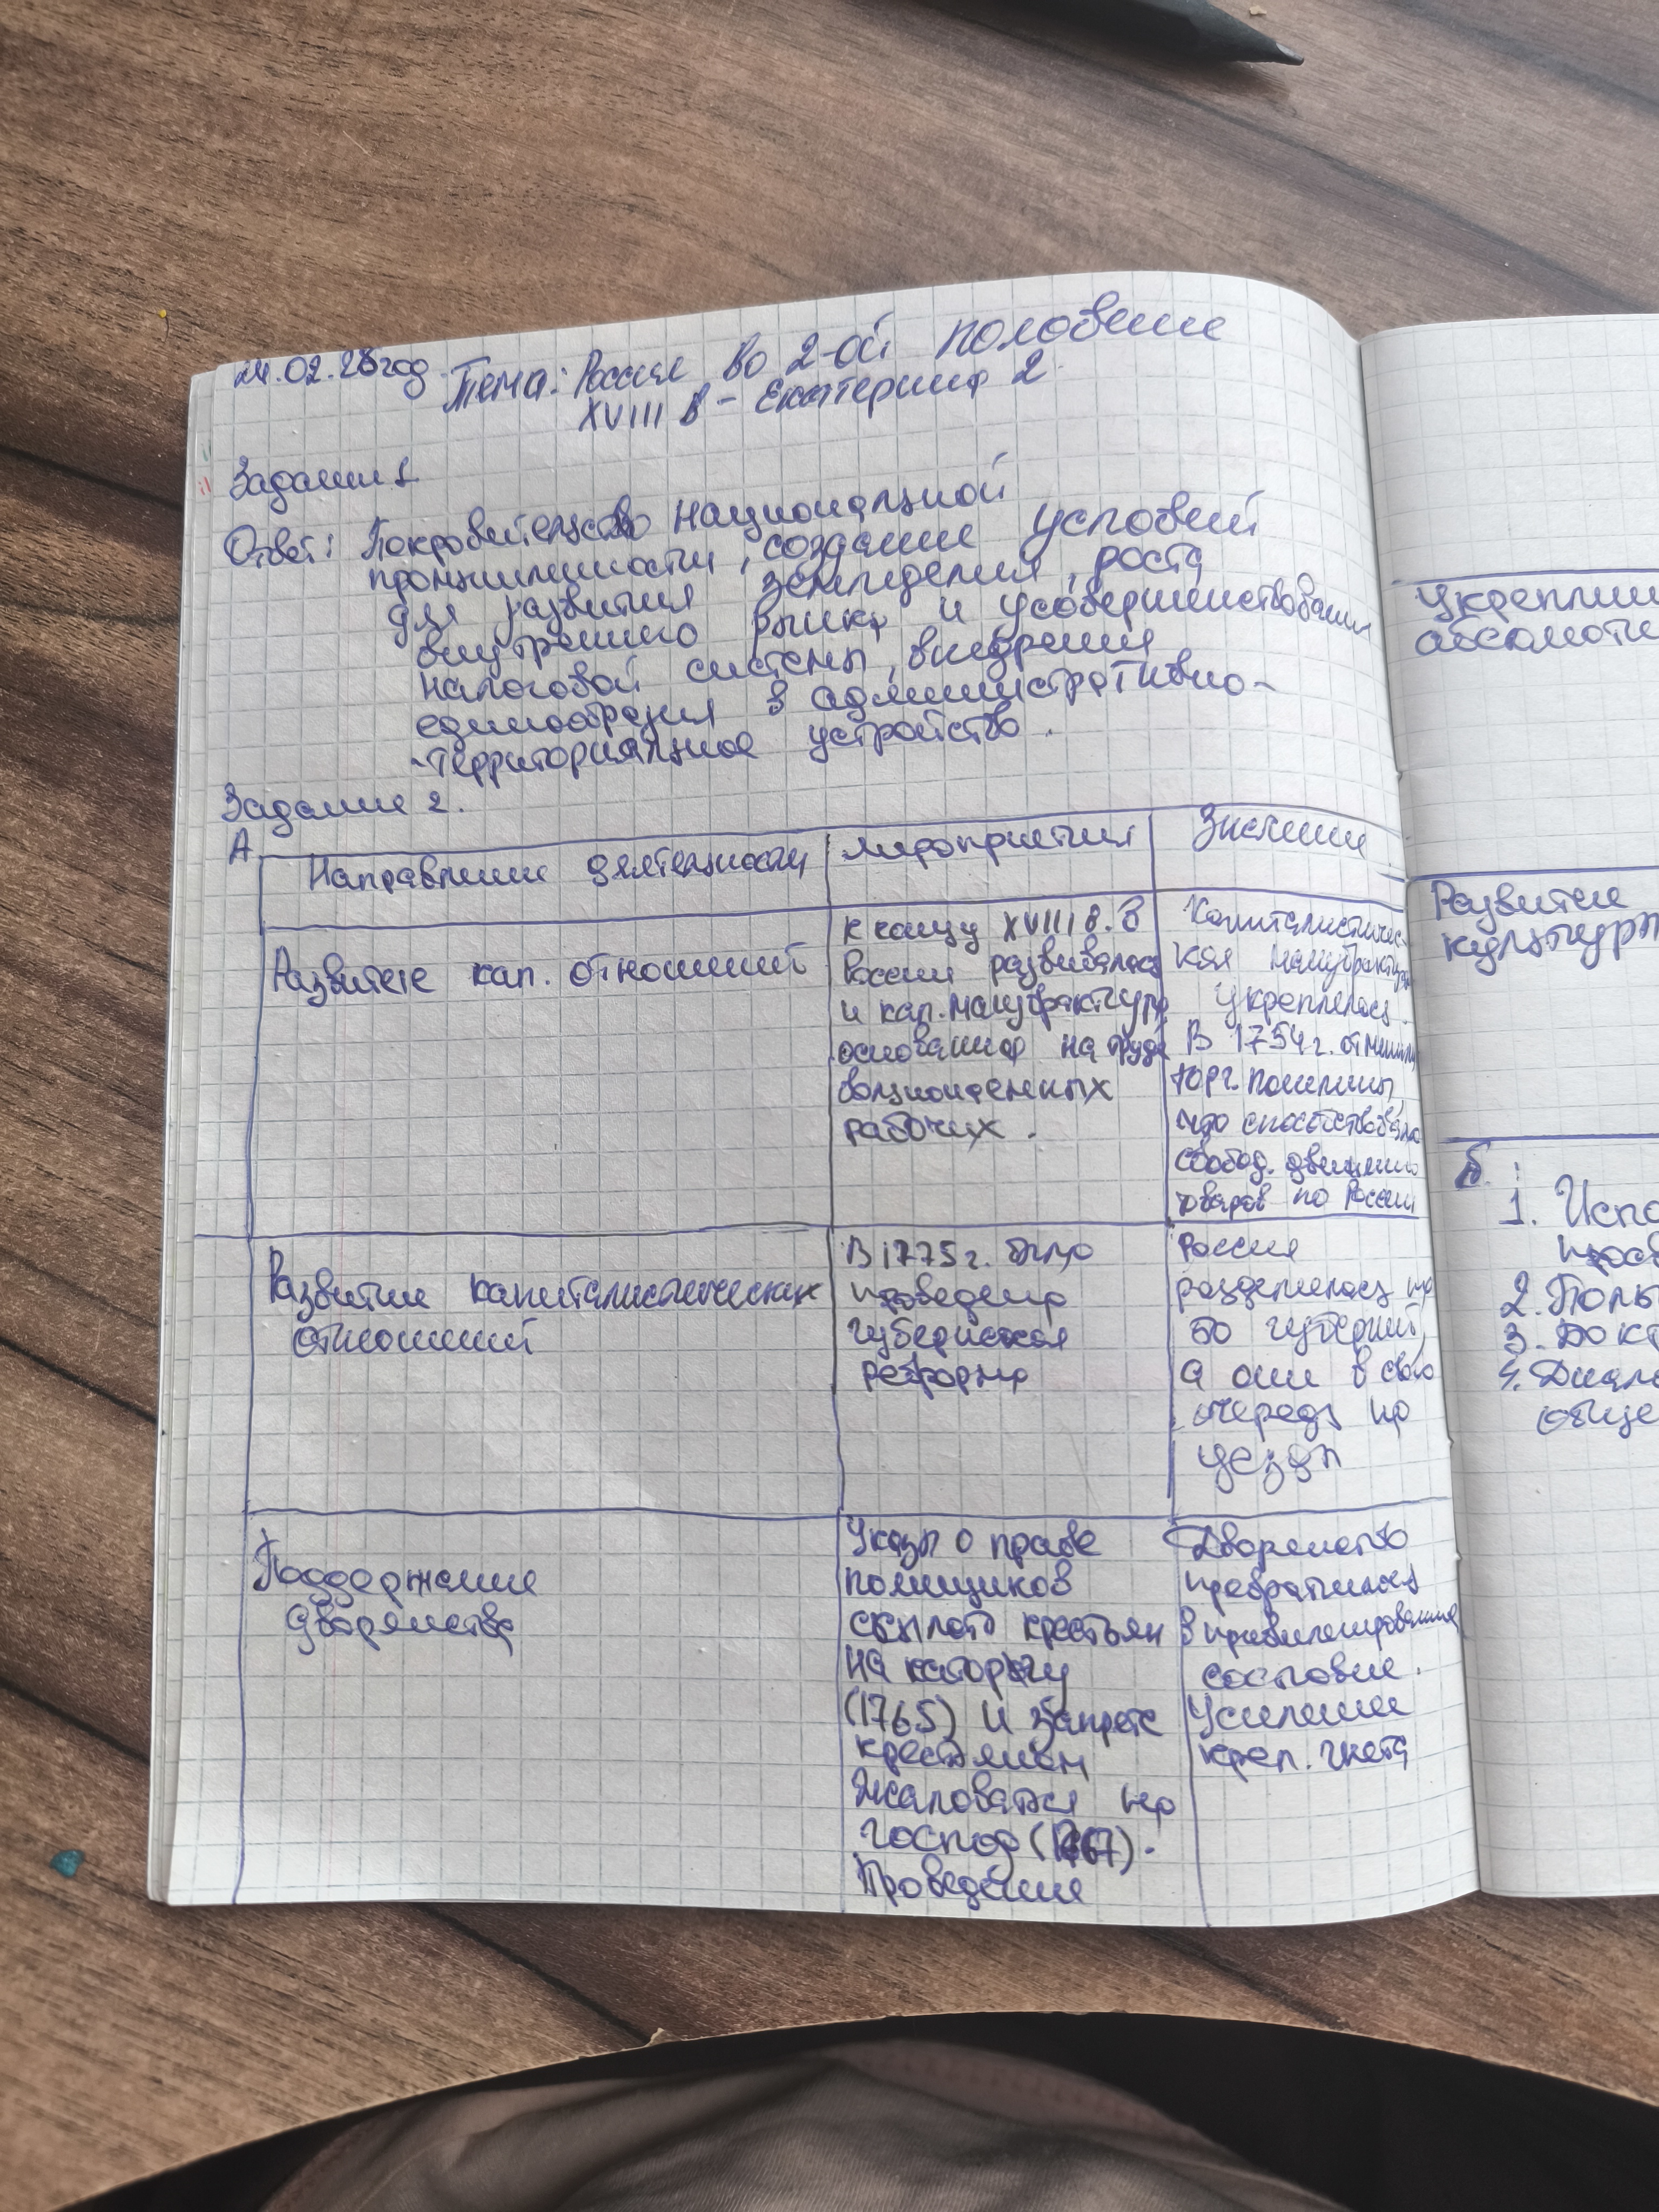 24.02.26 год.
Тема: Россия во 2-ой половине
XVIII в - Екатерина 2
Задание 1
Ответ: Покровительство национальной
промышленности, создание условий
для развития земледелия, роста
внутреннего рынка и усовершенствования
налоговой системы, внедрения
единообразия в административно-
-территориальное устройство.
Задание 2.
А
Направление деятельности
мероприятия
Значение
Развитие кап. отношений
К концу XVIII в. в
России развивалась
и кап. мануфактура
основанная на труде
вольнонаемных
рабочих.
Капиталистичес-
кая мануфактура
укреплялась.
В 1754 г. отменили
торг. пошлины,
что способствовало
свобод. движению
товаров по России
Развитие капиталистических
отношений
В 1775 г. была
проведена
губернская
реформа
Россия
разделилась на
50 губерний,
а они в свою
очередь на
уезды
Поддержание
дворянства
Указы о праве
помещиков
ссылать крестьян
на каторгу
(1765) и запрете
крестьянам
жаловаться на
господ (1767).
Проведение
Дворянство
превратилась
в привилегированное
сословие.
Усиление
креп. гнета
Укреплени
абсолюти
Развитие
культуры
Б.:
1. Испо
прос
2. Поль
3. Докт
4. Диало
обще